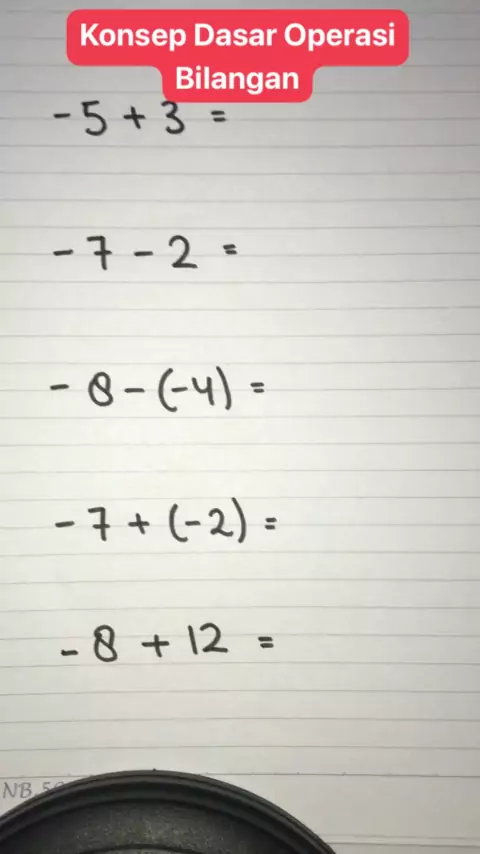 Konsep Dasar Operasi
Bilangan
-5 + 3 =
-7 - 2 =
-8 - (-4) =
-7 + (-2) =
-8 + 12 =
NB